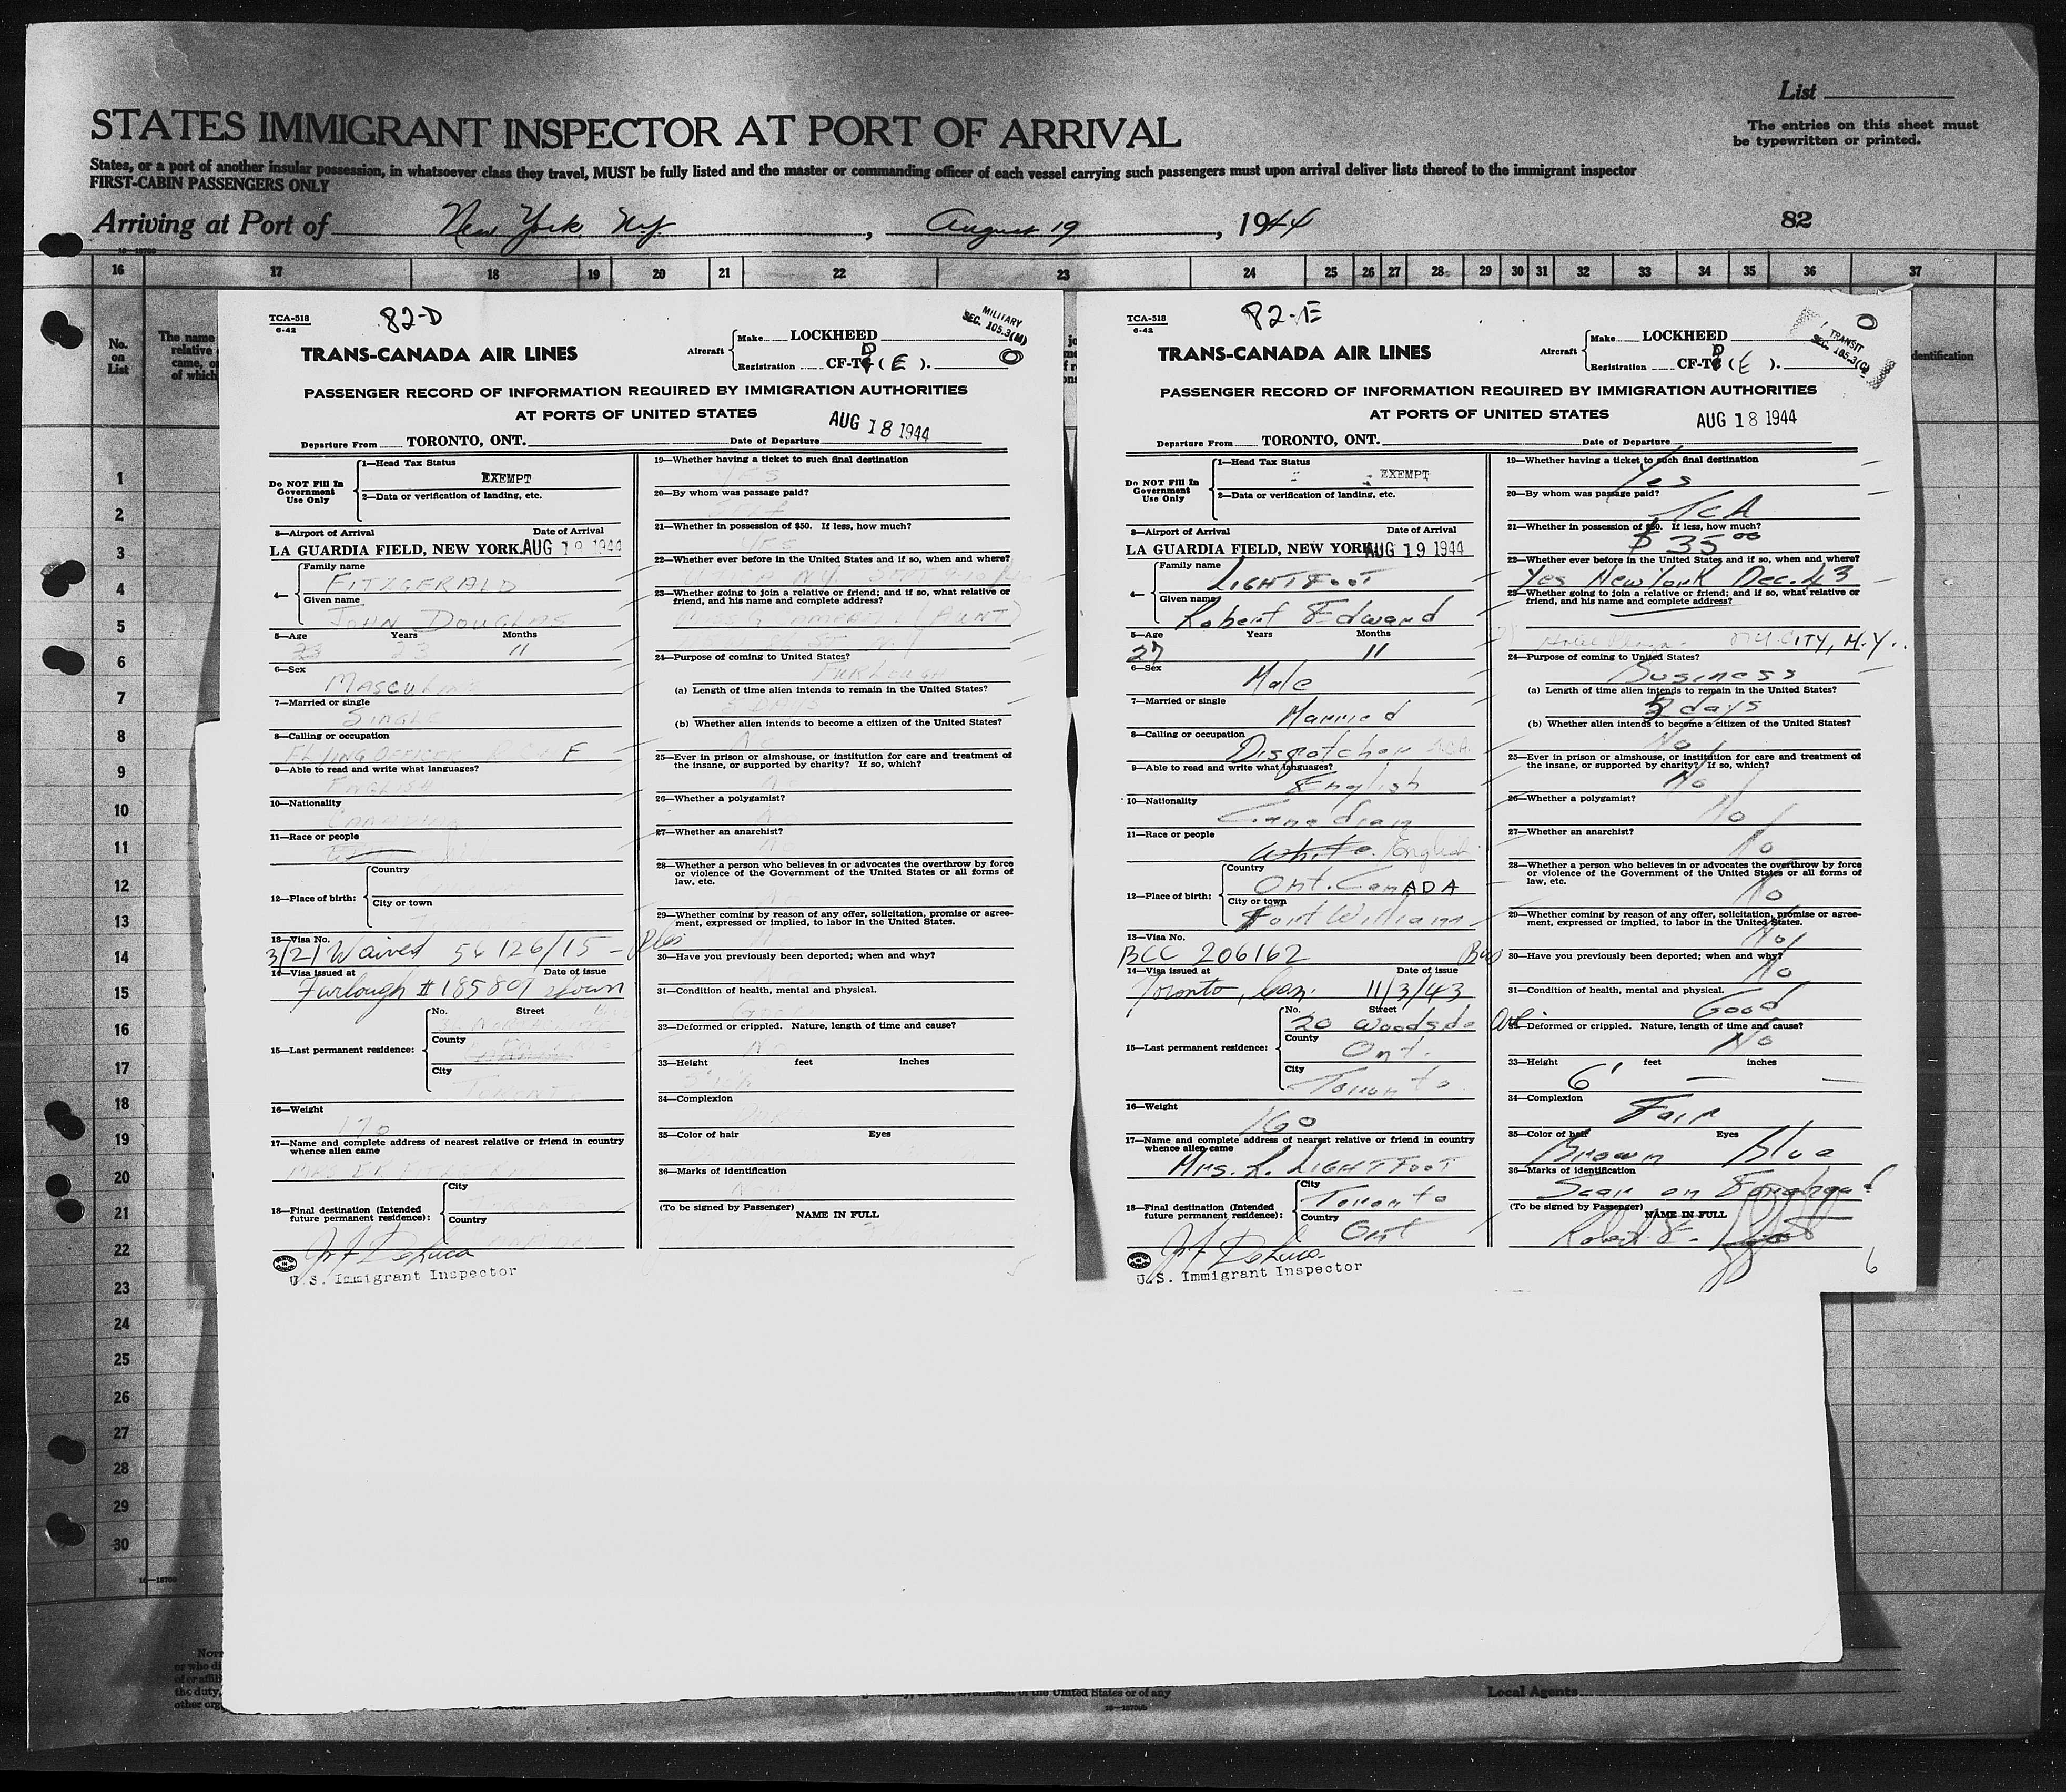 List
The entries on this sheet must
be typewritten or printed.
STATES IMMIGRANT INSPECTOR AT PORT OF ARRIVAL
States, or a port of another insular possession, in whatsoever class they travel, MUST be fully listed and the master or commanding officer of each vessel carrying such passengers must upon arrival deliver lists thereof to the immigrant inspector
FIRST-CABIN PASSENGERS ONLY
Arriving at Port of New York, N.Y., August 19, 1944
82
16 17 18 19 20 21 22 23 24 25 26 27 28 29 30 31 32 33 34 35 36 37
No.
on
List
The name
relative
came, o
of which
dentification
1
2
3
4
5
6
7
8
9
10
11
12
13
14
15
16
17
18
19
20
21
22
23
24
25
26
27
28
29
30
TCA-518
6-42
82-D
MILITARY
SEC. 105.3(M)
TRANS-CANADA AIR LINES
Aircraft
Make LOCKHEED
Registration CF-T (E).
PASSENGER RECORD OF INFORMATION REQUIRED BY IMMIGRATION AUTHORITIES
AT PORTS OF UNITED STATES
AUG 18 1944
Departure From TORONTO, ONT. Date of Departure
Do NOT Fill In
Government
Use Only
1—Head Tax Status
EXEMPT
2—Data or verification of landing, etc.
3—Airport of Arrival Date of Arrival
LA GUARDIA FIELD, NEW YORK. AUG 19 1944
4—
Family name
FITZGERALD
Given name
JOHN DOUGLAS
5—Age Years Months
23 23 11
6—Sex
MASCULINE
7—Married or single
SINGLE
8—Calling or occupation
FLYING OFFICER F
9—Able to read and write what languages?
ENGLISH
10—Nationality
CANADIAN
11—Race or people
12—Place of birth:
Country
City or town
13—Visa No.
3/2/ Waived 56126/15-
14—Visa issued at Date of issue
Furlough # 185801
15—Last permanent residence:
No. Street
County
City
TORONTO
16—Weight
170
17—Name and complete address of nearest relative or friend in country
whence alien came
18—Final destination (Intended
future permanent residence):
City
Country
U.S. Immigrant Inspector
19—Whether having a ticket to such final destination
YES
20—By whom was passage paid?
SELF
21—Whether in possession of $50. If less, how much?
YES
22—Whether ever before in the United States and if so, when and where?
23—Whether going to join a relative or friend; and if so, what relative or
friend, and his name and complete address?
(AUNT)
24—Purpose of coming to United States?
FURLOUGH
(a) Length of time alien intends to remain in the United States?
(b) Whether alien intends to become a citizen of the United States?
No
25—Ever in prison or almshouse, or institution for care and treatment of
the insane, or supported by charity? If so, which?
26—Whether a polygamist?
27—Whether an anarchist?
No
28—Whether a person who believes in or advocates the overthrow by force
or violence of the Government of the United States or all forms of
law, etc.
29—Whether coming by reason of any offer, solicitation, promise or agree-
ment, expressed or implied, to labor in the United States.
30—Have you previously been deported; when and why?
31—Condition of health, mental and physical.
Good
32—Deformed or crippled. Nature, length of time and cause?
No
33—Height feet inches
34—Complexion
35—Color of hair Eyes
36—Marks of identification
(To be signed by Passenger) NAME IN FULL
TCA-518
6-42
82-E
TRANSIT
SEC. 105.3(C)
TRANS-CANADA AIR LINES
Aircraft
Make LOCKHEED
Registration CF-T (E).
PASSENGER RECORD OF INFORMATION REQUIRED BY IMMIGRATION AUTHORITIES
AT PORTS OF UNITED STATES
AUG 18 1944
Departure From TORONTO, ONT. Date of Departure
Do NOT Fill In
Government
Use Only
1—Head Tax Status
EXEMPT
2—Data or verification of landing, etc.
3—Airport of Arrival Date of Arrival
LA GUARDIA FIELD, NEW YORK AUG 19 1944
4—
Family name
LIGHTFOOT
Given name
Robert Edward
5—Age Years Months
27 11
6—Sex
Male
7—Married or single
Married
8—Calling or occupation
Dispatcher
9—Able to read and write what languages?
English
10—Nationality
Canadian
11—Race or people
White English
12—Place of birth:
Country
Ont. CanADA
City or town
Fort William
13—Visa No.
BCC 206162
14—Visa issued at Date of issue
Toronto, Can. 11/3/43
15—Last permanent residence:
No. Street
20 Woodside Ave.
County
Ont.
City
Toronto
16—Weight
160
17—Name and complete address of nearest relative or friend in country
whence alien came
Mrs. L. LIGHTFOOT
18—Final destination (Intended
future permanent residence):
City
Toronto
Country
Ont
U.S. Immigrant Inspector
19—Whether having a ticket to such final destination
Yes
20—By whom was passage paid?
TCA
21—Whether in possession of $50. If less, how much?
$35.00
22—Whether ever before in the United States and if so, when and where?
Yes New York Dec. 43
23—Whether going to join a relative or friend; and if so, what relative or
friend, and his name and complete address?
CITY, N.Y.
24—Purpose of coming to United States?
Business
(a) Length of time alien intends to remain in the United States?
days
(b) Whether alien intends to become a citizen of the United States?
No
25—Ever in prison or almshouse, or institution for care and treatment of
the insane, or supported by charity? If so, which?
No
26—Whether a polygamist?
No
27—Whether an anarchist?
No
28—Whether a person who believes in or advocates the overthrow by force
or violence of the Government of the United States or all forms of
law, etc.
No
29—Whether coming by reason of any offer, solicitation, promise or agree-
ment, expressed or implied, to labor in the United States.
No
30—Have you previously been deported; when and why?
No
31—Condition of health, mental and physical.
Good
Deformed or crippled. Nature, length of time and cause?
No
33—Height feet inches
6' — —
34—Complexion
Fair
35—Color of hair Eyes
Brown Blue
36—Marks of identification
Scar on Forehead
(To be signed by Passenger) NAME IN FULL
Robert E.
6
Local Agents